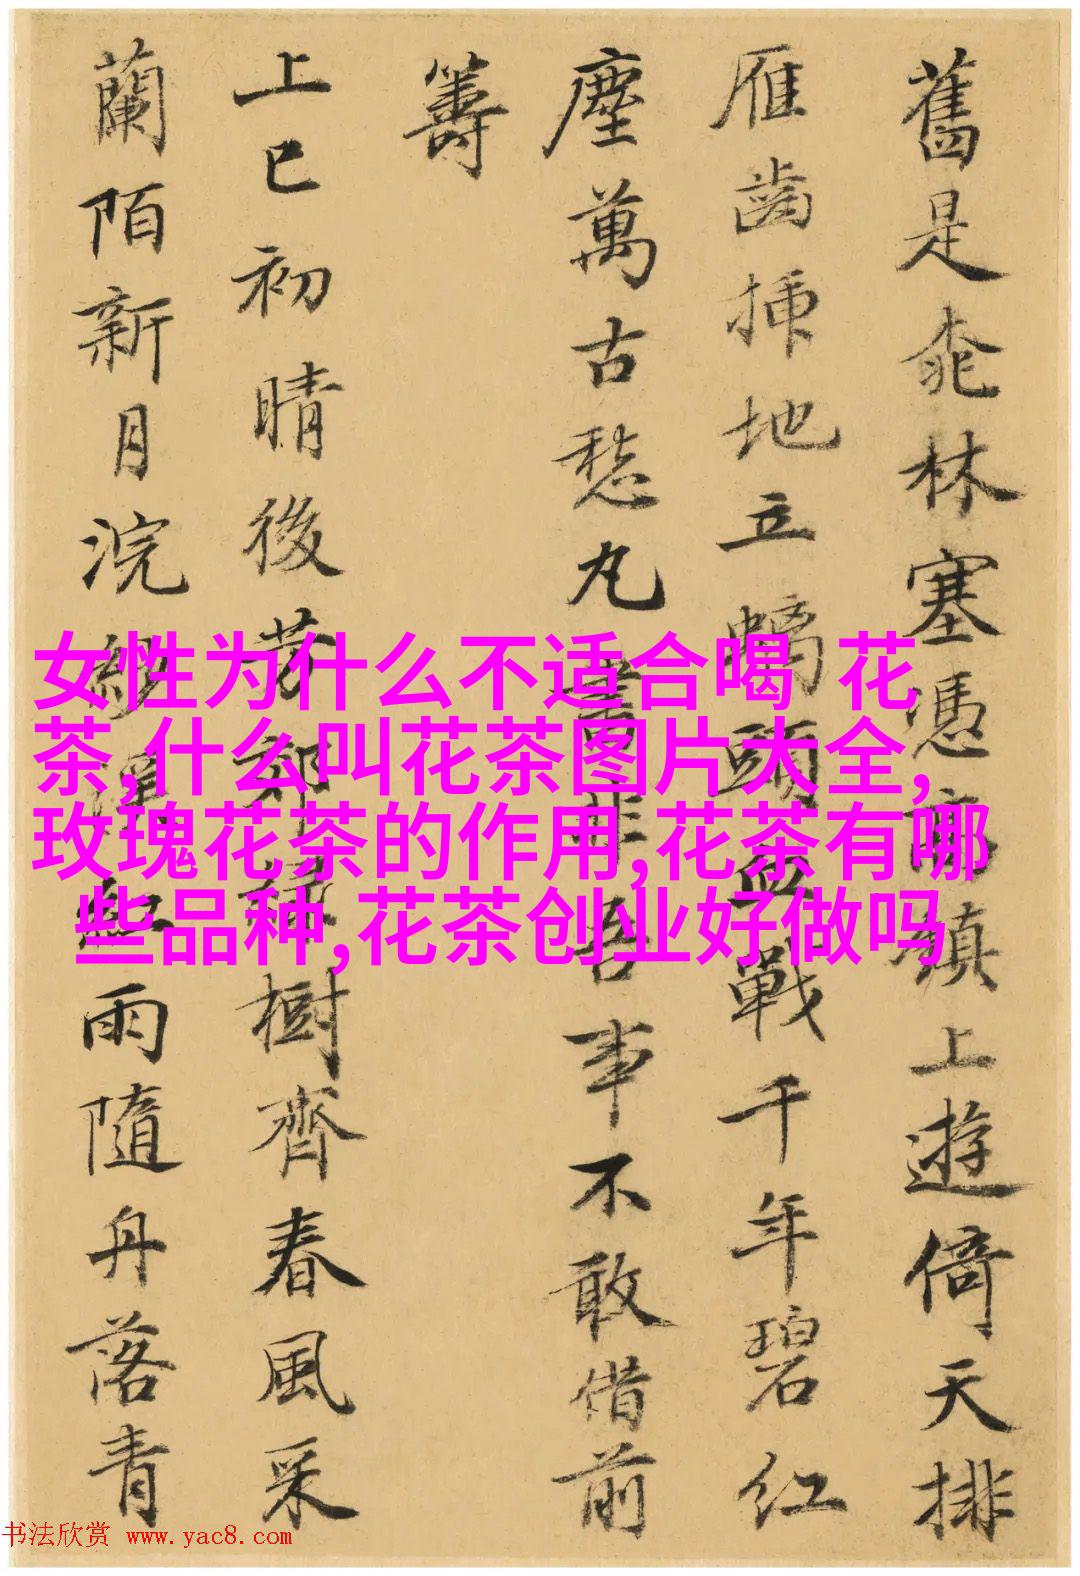 舊是桃林塞憑高鎮上遊倚天排
雁齒插地立螭頭血戰千年碧紅
塵萬古愁丸書非吾事不敢借前
籌
上巳初晴後芳郊樹齊春風采
蘭陌新月浣紗溪紅雨隨舟落青
女性为什么不适合喝 花
茶,什么叫花茶图片大全,
玫瑰花茶的作用,花茶有哪
些品种,花茶创业好做吗
书法欣赏 www.yac8.com